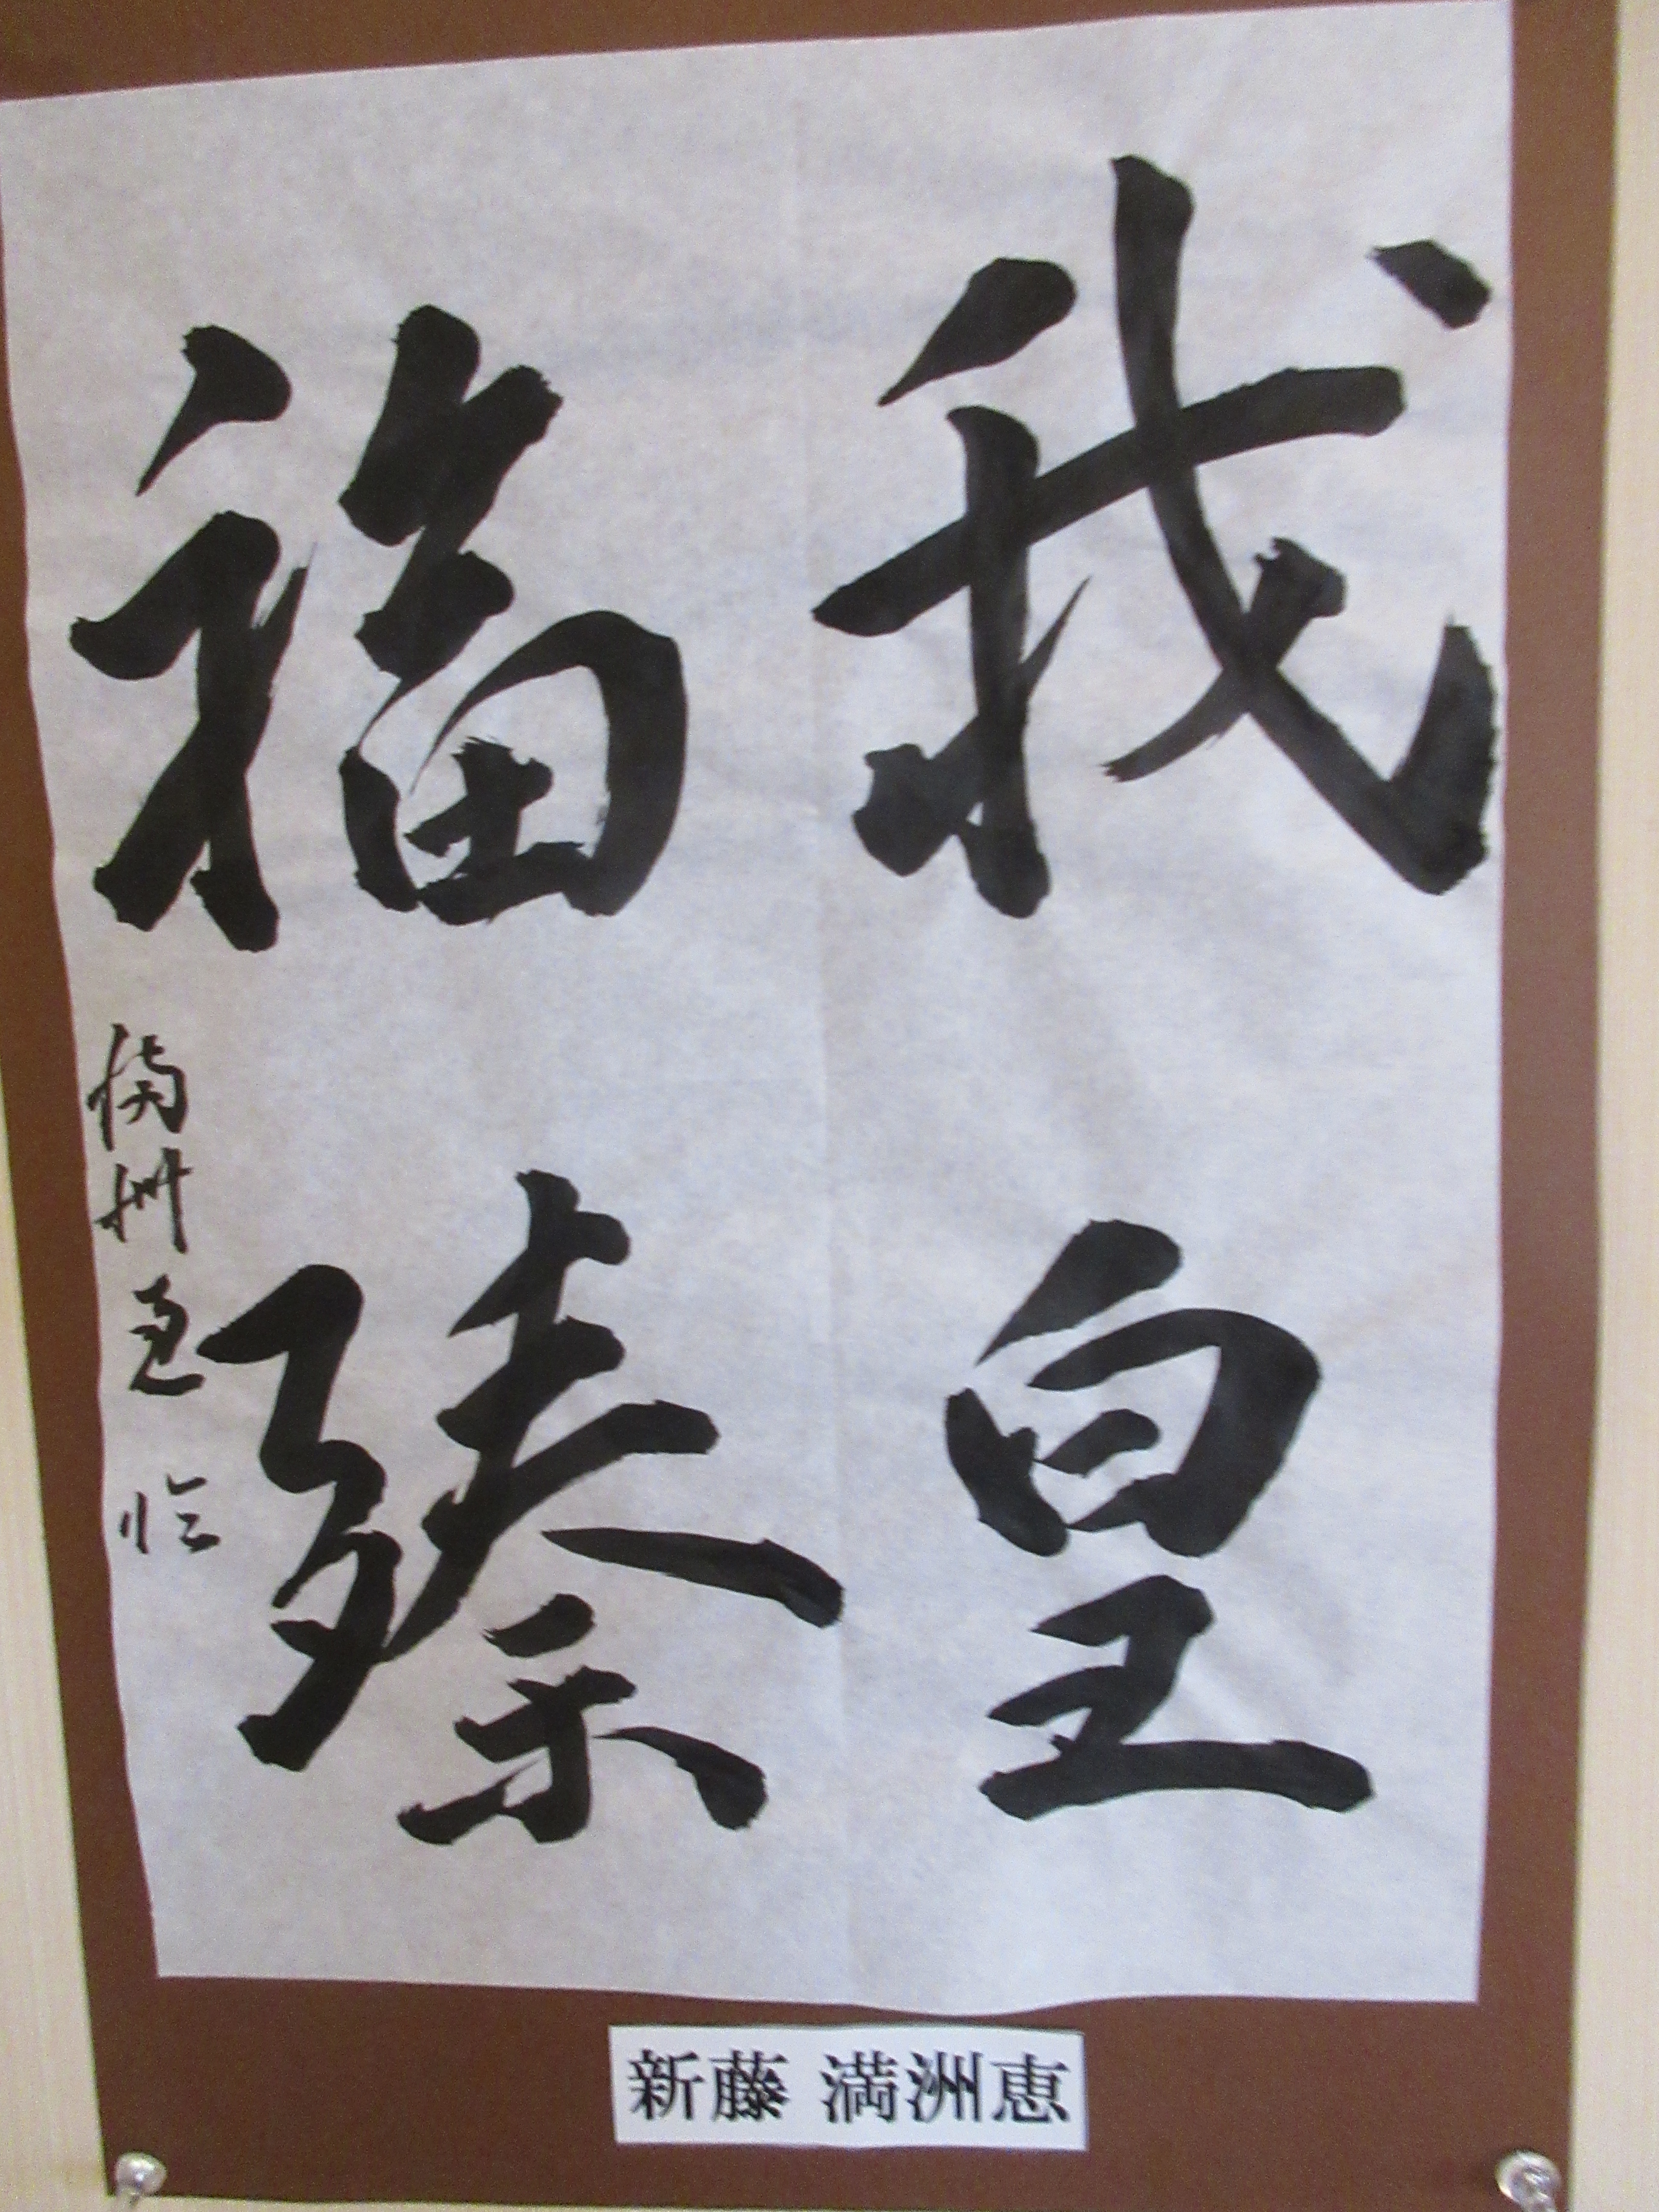 我皇
福臻
満洲恵 臨
新藤 満洲恵